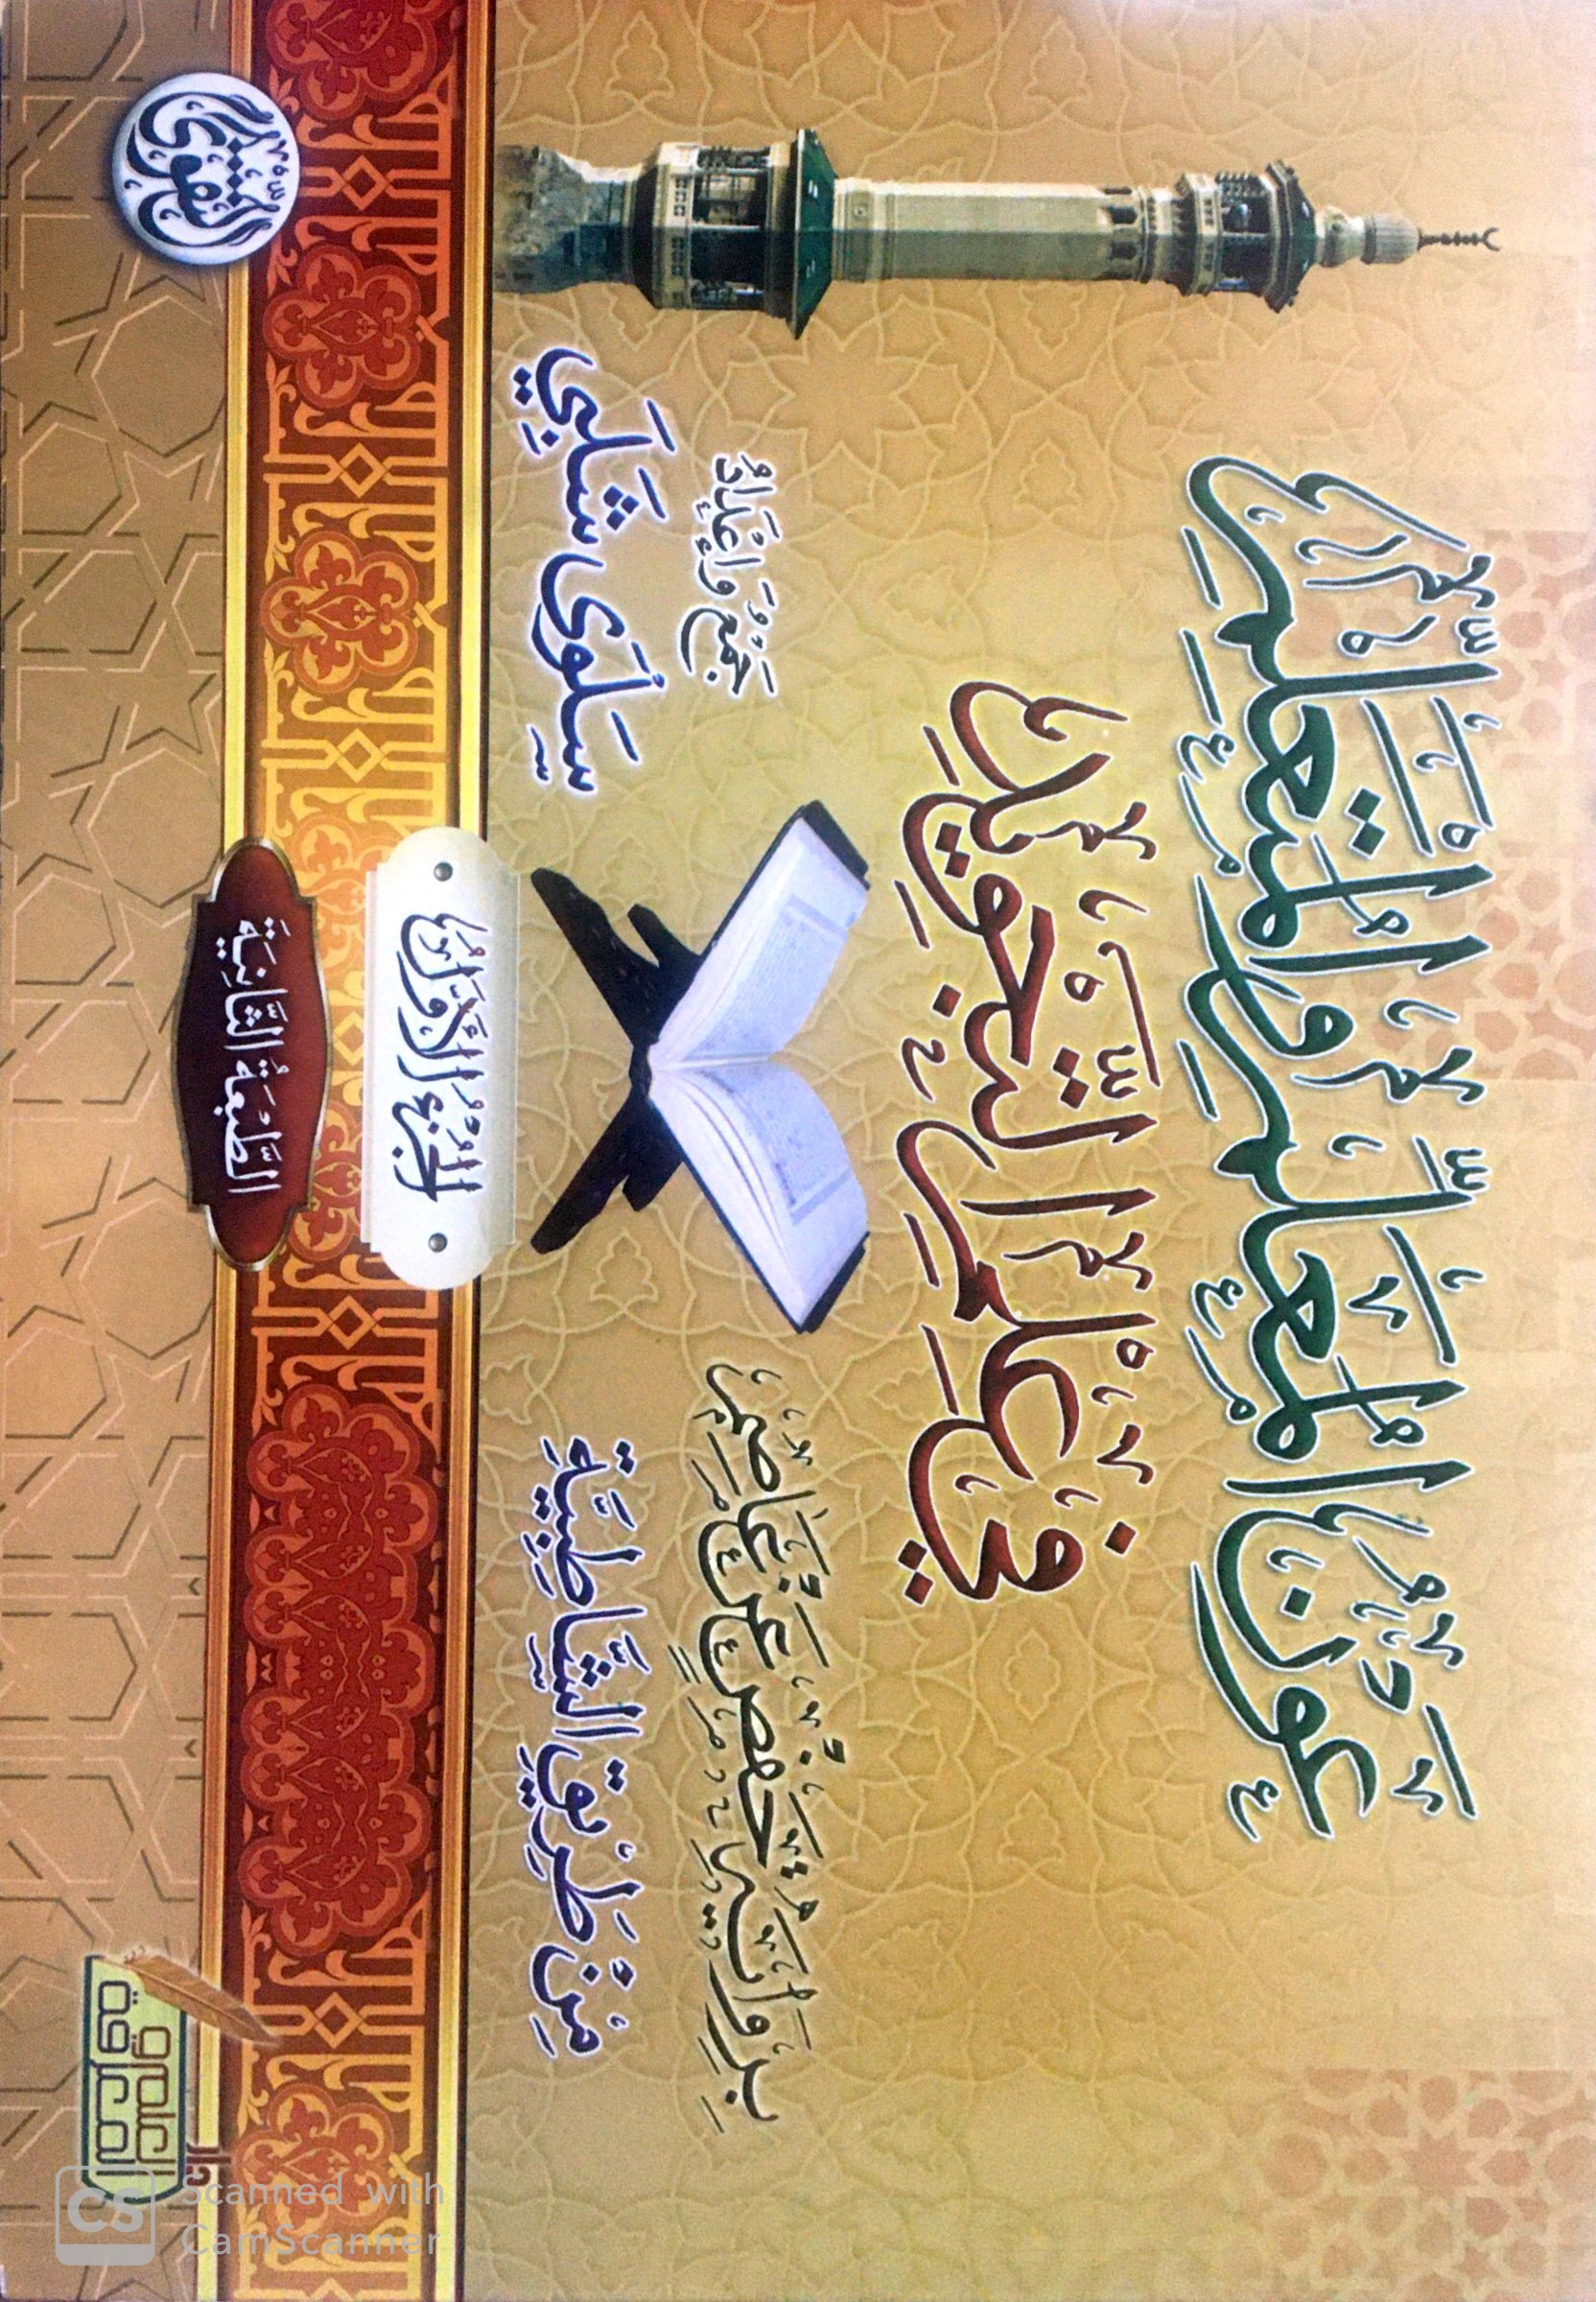 عَوْنُ الْمُعَلِّمِينَ وَالْمُتَعَلِّمِينَ
فِي عِلْمِ التَّجْوِيدِ
بِرِوَايَةِ حَفْصٍ عَنْ عَاصِمٍ
مِنْ طَرِيقِ الشَّاطِبِيَّةِ
جَمْعُ وَإِعْدَادُ
سَلْوَى شَلَبِي
الْجُزْءُ الْأَوَّلُ
الطَّبْعَةُ الثَّانِيَةُ
دار
الصفوة
Scanned with
CamScanner